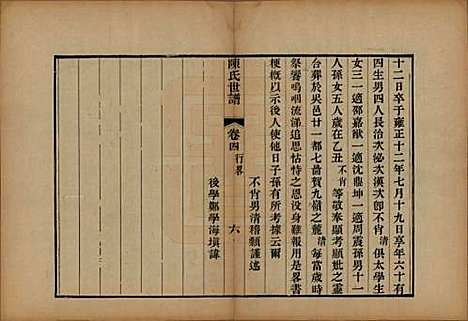 十二日卒于雍正十二年七月十九日享年六十有
四生男四人長洽次泌次漢次卽不肖清俱太學生
女三一適邵嘉猷一適沈鼎坤一適周震孫男十一
人孫女五人歲在乙丑不肖清等敬奉顯考顯妣之靈
台葬於吳邑廿一都七齒賀九嶺之麓清每當歲時
祭饗嗚咽流涕追思怙恃之恩沒身難報用書
梗槪以示後人使他日子孫有所考據云爾
不肖男清稽顙謹述
後學鄭學海塡諱
陳氏世譜
卷四行畧
六